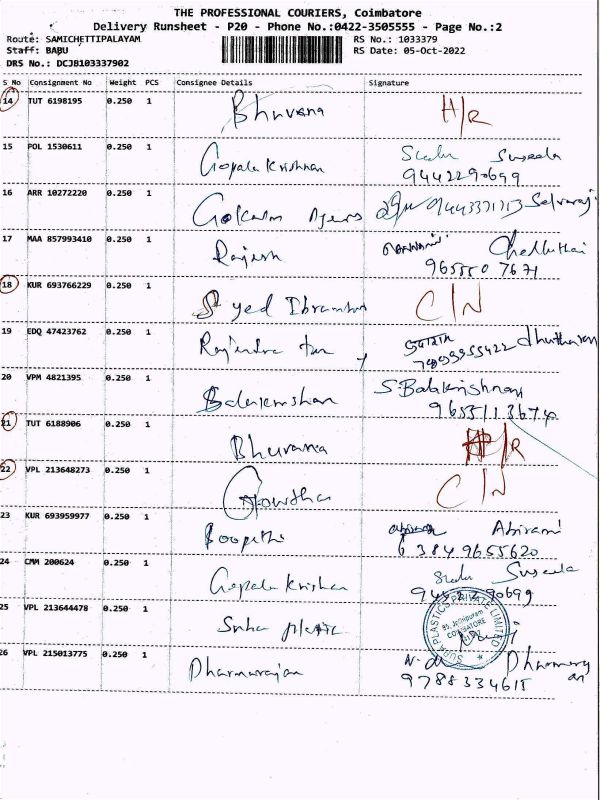 THE PROFESSIONAL COURIERS, Coimbatore
Delivery Runsheet - P20 - Phone No.:0422-3505555 - Page No.:2
Route: SAMICHETTIPALAYAM RS No.: 1033379
Staff: BABU RS Date: 05-Oct-2022
DRS No.: DCJB103337902
S No Consignment No Weight PCS Consignee Details Signature
14 TUT 6198195 0.250 1 Bhuvana H/R
15 POL 1530611 0.250 1 Gopala Krishnan Suseela
9442290699
16 ARR 10272220 0.250 1 Selvaraj
17 MAA 857993410 0.250 1 Rajesh Chelluthai
9655507671
18 KUR 693766229 0.250 1 Syed Ibramhm C/N
19 EDQ 47423762 0.250 1
20 VPM 4821395 0.250 1 Balakrnshan S.Balakrishnan
21 TUT 6188906 0.250 1 Bhuvana H/R
22 VPL 213648273 0.250 1 Gowtham C/N
23 KUR 693959977 0.250 1 Boopathi Abirami
6 3849655620
24 CMM 200624 0.250 1 Gopala Krishan Suseela
25 VPL 213644478 0.250 1
SUPA PLASTICS PRIVATE LIMITED
COIMBATORE
26 VPL 215013775 0.250 1 Dharmarajan
9788334615